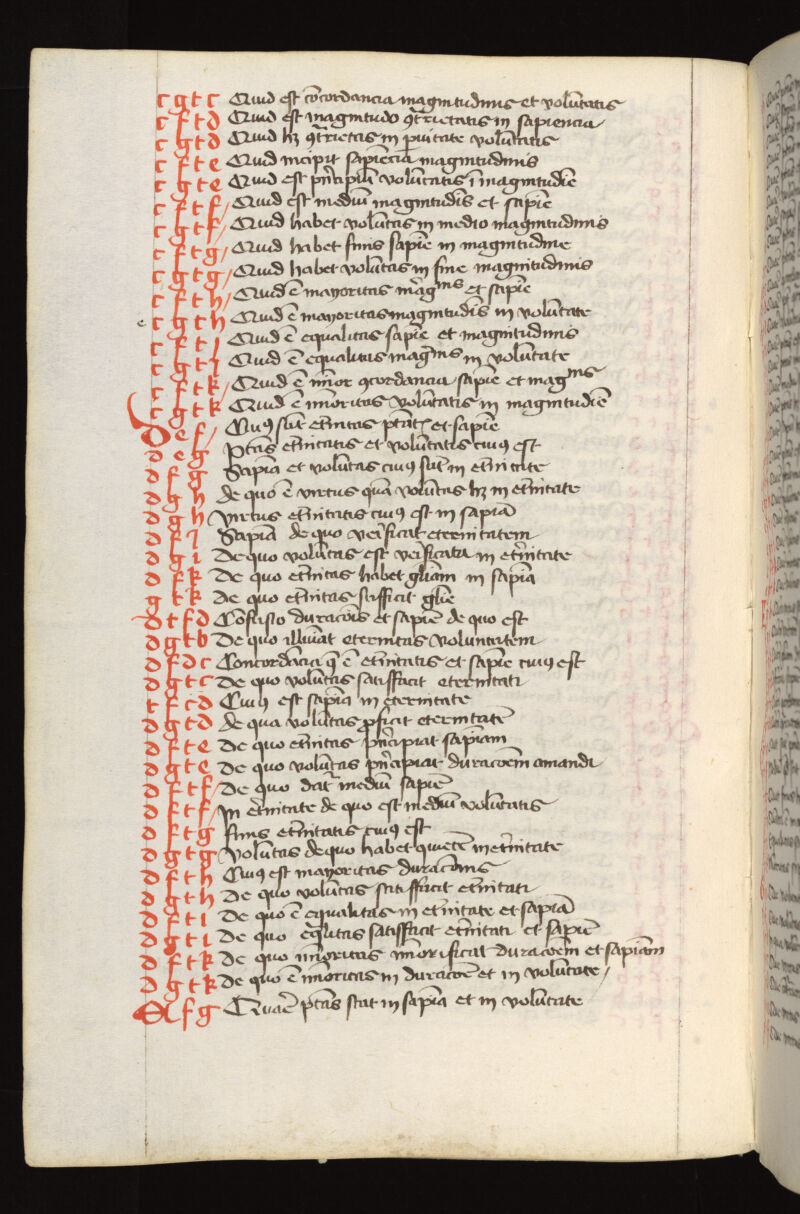 c g t c Quid est cōcordancia magnitudinis et volūtatis
c f t d Quid est magnitudo ꝯtrietatis in sapiencia
c g t d Quid hꝫ ꝯtrietas in pͥuitate volūtatis
c f t e Quid incipit sapiēcia magnitudinis
c g t e Quid est pͥncipiū volūtatis ī magnitudīe
c f t f Quid est mediū magnitudīs et sapīe
c g t f Quid habet volūtas in medio magnitudinis
c f t g Quid habet finis sapīe in magnitudine
c g t g Quid habet volūtas in fine magnitudinis
c f t h Quid ē mayoritas et sapīe
c g t h Quid ē mayoritas magnitudīs in volūtate
c f t i Quid ē equalitas sapīe et magnitudinis
c g t i Quid ē equalitas magⁿⁱˢ in volūtate
c f t k Quid ē mīor ꝯcordancia sapīe et magⁿⁱˢ
c g t k Quid ē mīoritas volūtatis in magnitudīe
D e f Cuiꝰ sūt et̄nitas et sapīe
d e g ptās et̄nitatis et volūtatis cuiꝰ est
d f g Sapīa et volūtas cuiꝰ sūt in et̄nitate
d g h de quo ē virtus quā volūtas hꝫ in et̄nitate
d g h virtus et̄nitatis cuiꝰ est in sapīa
d f i Sapīa de quo veͥificat eternitatem
d g i De quo volūtas est veͥificata in et̄nitate
d f k De quo et̄nitas habet glīam in sapīa
g t k De quo et̄nitas sufficit glīe
d t f d Cōfusio duracōis et sapīe de quo est
d g t b De quo illūiat eternitas voluntatem
d f d c Concordācia q̄ ē et̄nitatis et sapīe cuiꝰ est
d g t c De quo volūtas satisfacit eternitati
t f c d Cuiꝰ est sapīa in eternitate
d g t d de qua volūtas ꝓficit eternitatē
d f t e De quo et̄nitas pͥncipiat sapīam
d g t e De quo volūtas pͥncipiat duracōem amandi
d f t f De quo dat̄ mediū sapīe
d f t f In et̄nitate de quo est mediū volūtatis
d f t g finis et̄nitatis cuiꝰ est
d g t g Voluntas de quo habet quietē in et̄nitate
d f t h Cuiꝰ est mayoritas duracōnis
d g t h De quo volūtas satisfficit et̄nitati
d f t i De quo ē equalitas in et̄nitate et sapīa
d g t i De quo eq̄litas satisfficit et̄nitati et sapīe
d f t k De quo mīoritas mīorificat duracōem et sapīam
d g t k De quo ē mīoritas in duracōe et in volūtate
E f g Quare ptās stat in sapīa et in volūtate